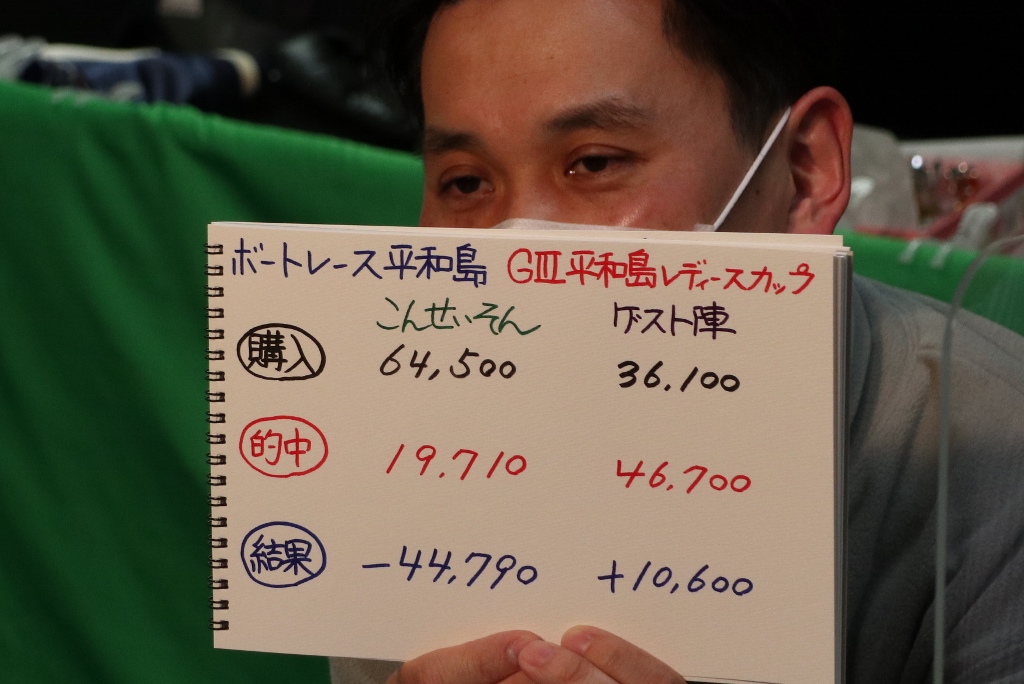 ボートレース平和島 GⅢ平和島レディースカップ
こんせいそん ゲスト陣
購入 64,500 36,100
的中 19,710 46,700
結果 -44,790 +10,600